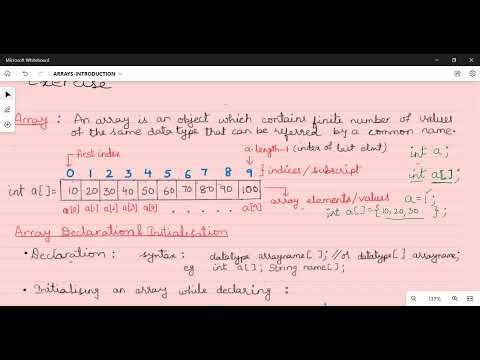 Microsoft Whiteboard
ARRAYS-INTRODUCTION
Exercise
Array : An array is an object which contains finite number of values
of the same data type that can be referred by a common name.
first index
a.length-1 (index of last elmt)
int a;
0 1 2 3 4 5 6 7 8 9 indices/subscript
int a[];
int a[]= 10 20 30 40 50 60 70 80 90 100
array elements/values
a[0] a[1] a[2] a[3] a[4] . . . . . a[9]
int a[]={10,20,30
Array Declaration & Initialisation
• Declaration: syntax: datatype arrayname[]; //or datatype[] arrayname;
eg int a[]; String name[];
• Initialising an array while declaring :
137%